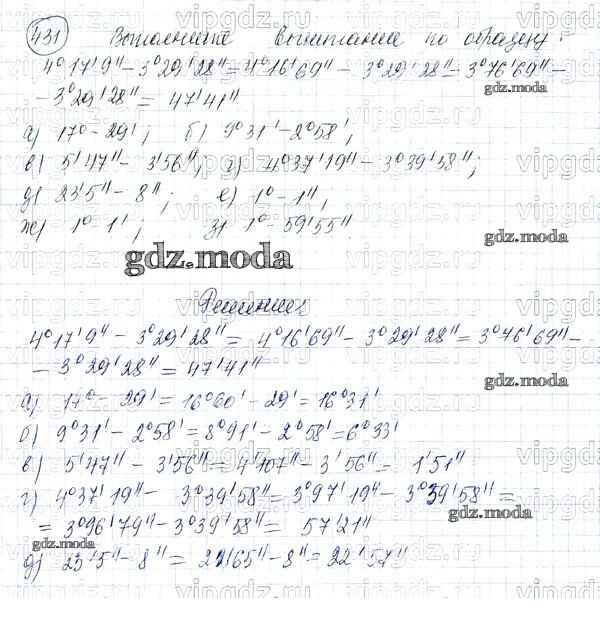 431 Выполните вычитание по образцу:
4°17'9" - 3°29'28" = 4°16'69" - 3°29'28" = 3°76'69" -
- 3°29'28" = 47'41"
а) 17° - 29'; б) 9°31' - 2°58';
в) 5'47" - 3'56"; г) 4°37'19" - 3°39'58";
д) 23'5" - 8"; е) 1° - 1";
ж) 1° - 1'; з) 1° - 59'55"
gdz.moda
Решение:
4°17'9" - 3°29'28" = 4°16'69" - 3°29'28" = 3°76'69" -
- 3°29'28" = 47'41"
а) 17° - 29' = 16°60' - 29' = 16°31'
б) 9°31' - 2°58' = 8°91' - 2°58' = 6°33'
в) 5'47" - 3'56" = 4'107" - 3'56" = 1'51"
г) 4°37'19" - 3°39'58" = 3°97'19" - 3°39'58" =
= 3°96'79" - 3°39'58" = 57'21"
д) 23'5" - 8" = 22'65" - 8" = 22'57"